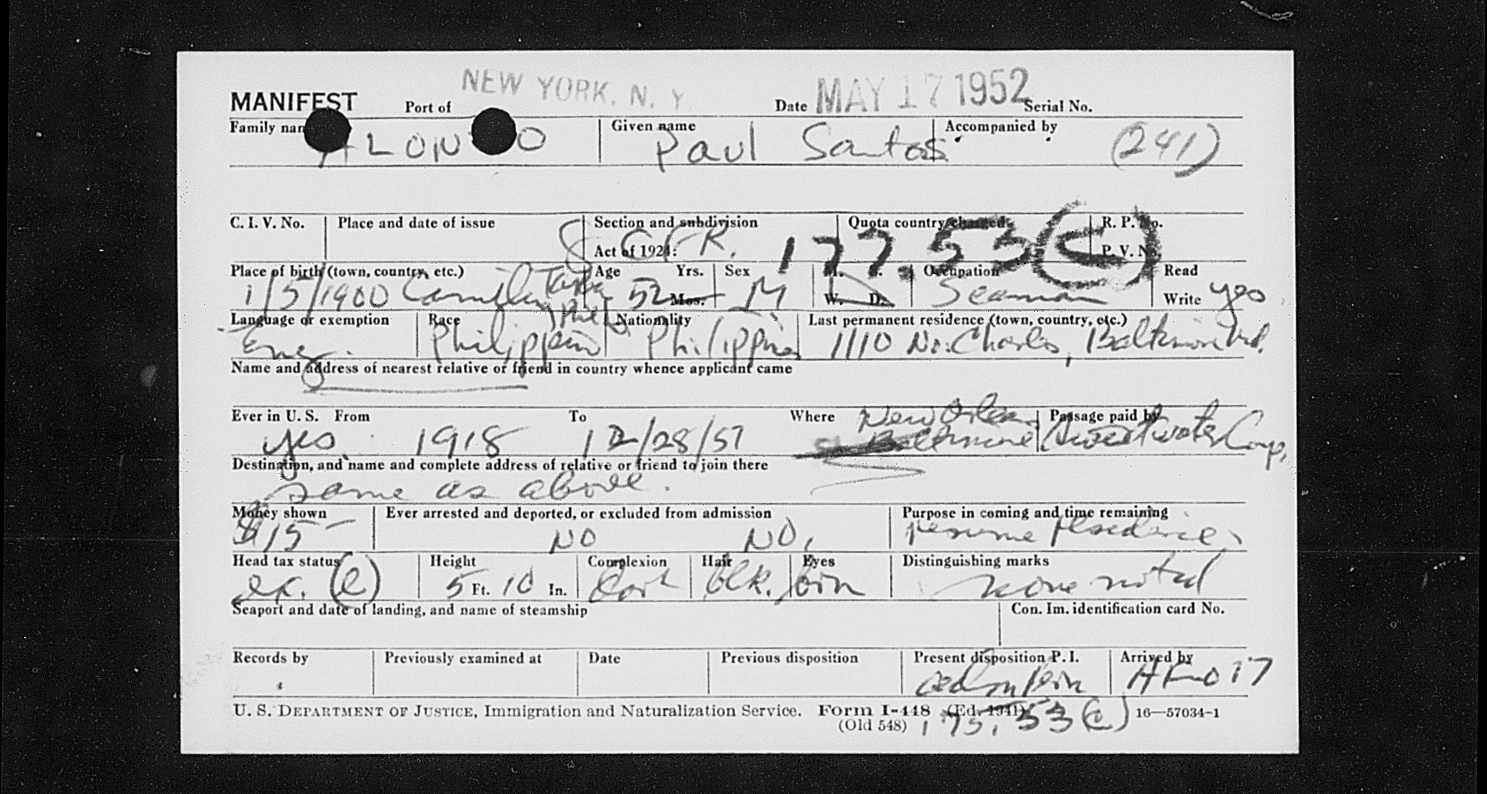 NEW YORK, N. Y.
MANIFEST Port of Date MAY 17 1952 Serial No.
Family nam Given name Accompanied by
ALON O Paul Santos (241)
C. I. V. No. Place and date of issue Section and subdivision Quota country charged R. P. No.
Act of 1924: P. V. N
8 CFR. 177.53(c)
Place of birth (town, country, etc.) Age Yrs. Sex M. S. Occupation Read
1/5/1900 Phil 52 Mos. M W. D. Seaman Write yes
Language or exemption Race Nationality Last permanent residence (town, country, etc.)
Eng. Philippine Philippine 1110 No. Charles, Baltimore Md.
Name and address of nearest relative or friend in country whence applicant came
Ever in U. S. From To Where New Orleans Passage paid by
yes. 1918 12/28/51 Baltimore Sweetwater Corp.
Destination, and name and complete address of relative or friend to join there
same as above.
Money shown Ever arrested and deported, or excluded from admission Purpose in coming and time remaining
$15- NO NO, resume residence
Head tax status Height Complexion Hair Eyes Distinguishing marks
ex. (e) 5 Ft. 10 In. dark blk. brn none noted
Seaport and date of landing, and name of steamship Con. Im. identification card No.
Records by Previously examined at Date Previous disposition Present disposition P. I. Arrived by
U. S. DEPARTMENT OF JUSTICE, Immigration and Naturalization Service. Form I-448 (Ed. 1941) 16—57034-1
(Old 548) 175.53(c)